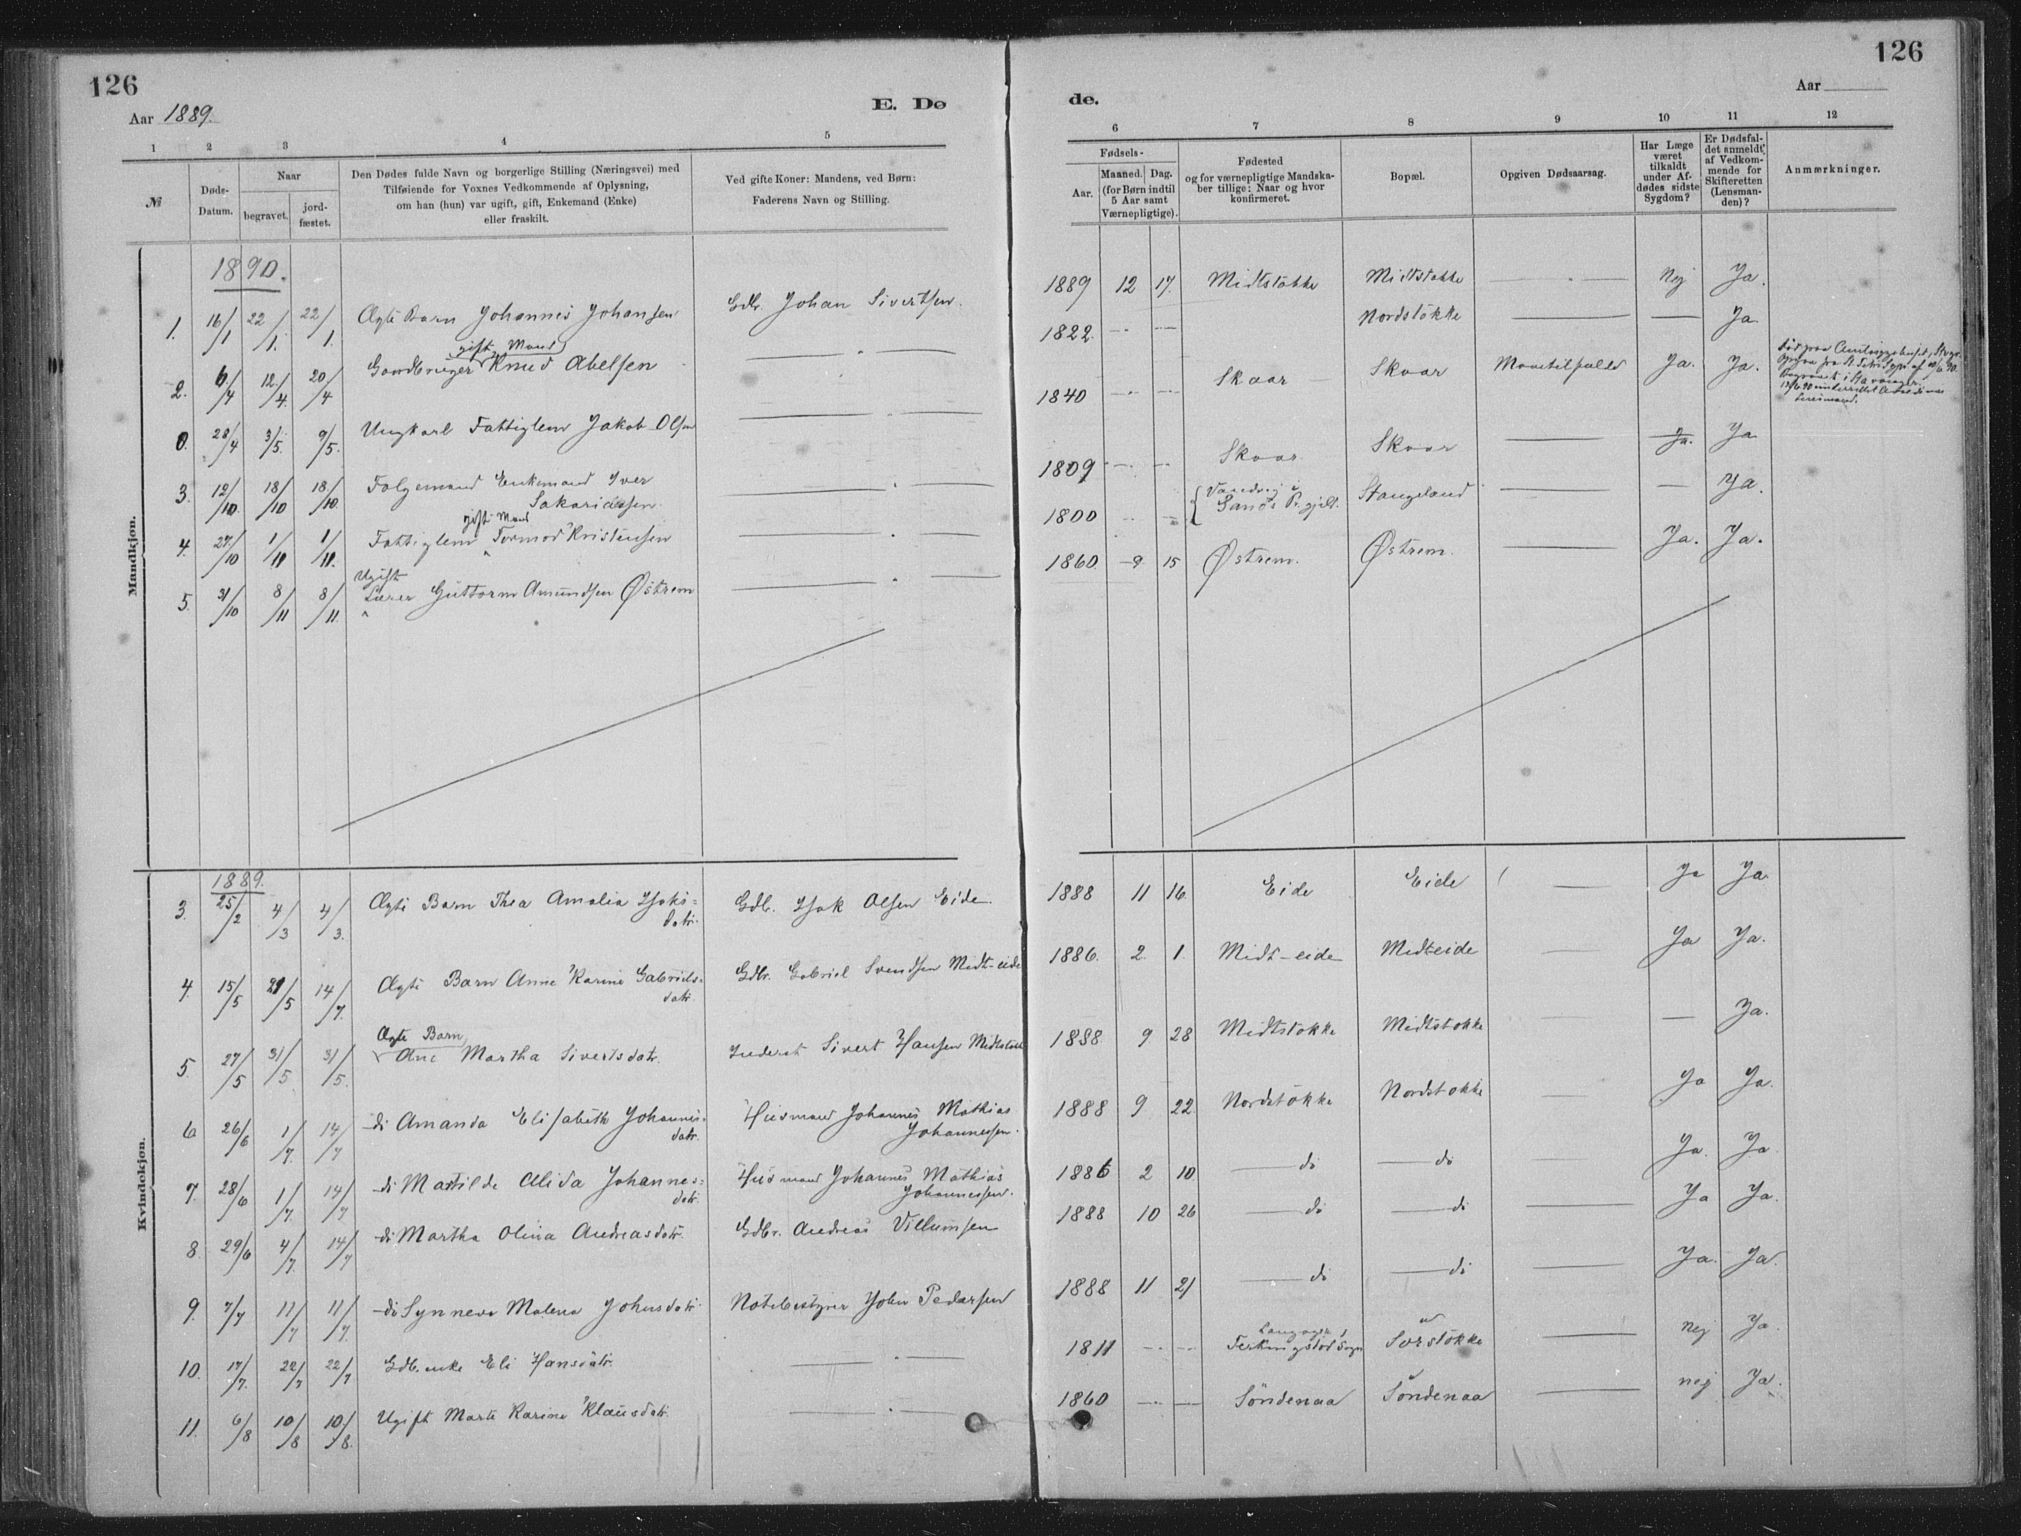 126
Aar 1889.
E. Dø
1 2 3 4 5
№
Døds-
Datum.
Naar
begravet.
jord-
fæstet.
Den Dødes fulde Navn og borgerlige Stilling (Næringsvei) med
Tilføiende for Voxnes Vedkommende af Oplysning,
om han (hun) var ugift, gift, Enkemand (Enke)
eller fraskilt.
Ved gifte Koner: Mandens, ved Børn:
Faderens Navn og Stilling.
Mandkjøn.
1890.
1. 16/1 22/1. 22/1. Ægte Barn Johannes Johansen Gdbr. Johan Sivertsen.
gift Mand
2. 6/4 12/4. 20/4 Gaardbruger Knud Abelsen — " —
0. 28/4 3/5. 9/5. Ungkarl Fattiglem Jakob Olsen — " —
3. 12/10. 18/10 18/10. Folgemand Enkemand Iver
Sakariasen. — " —
gift Mand
4. 27/10 1/11 1/11. Fattiglem Tormod Kristensen — " —
Ugift
5. 31/10 8/11 8/11. Lærer Guttorm Amundsen Østrem — " —
Kvindekjøn.
1889.
3. 25/2 4/3 4/3. Ægte Barn Thea Amalia Isaks=
datr. Gdb. Isak Olsen Eide.
4. 15/5 21/5 14/7. Ægte Barn Anne Karine Gabriels-
datr. Gdbr. Gabriel Svendsen Midt-eide
Ægte Barn
5. 27/5 31/5 31/5. Ane Martha Sivertsdatr. Inderst Sivert Hansen Midtstokke
6 26/6 1/7. 14/7 di Amanda Elisabeth Johannes-
datr. Husmand Johannes Mathias
Johannessen.
7. 28/6 1/7. 14/7 di Matilde Alida Johannes=
datr. Husmand Johannes Mathias
Johannessen.
8. 29/6 4/7. 14/7 di Martha Olina Andreasdatr. Gdbr. Andreas Villumsen
9. 7/7 11/7 11/7. di Synneva Malena Johnsdatr. Notebestyrer John Pedersen
10. 17/7. 22/7 22/7 Gdb.enke Eli Hansdatr. — " —
11. 6/8 10/8 10/8. Ugift Marte Karine Klausdatr. — " —
126
Aar
de.
6 7 8 9 10 11 12
Fødsels-
Aar.
Maaned. Dag.
(for Børn indtil
5 Aar samt
Værnepligtige).
Fødested
og for værnepligtige Mandska-
ber tillige: Naar og hvor
konfirmeret.
Bopæl.
Opgiven Dødsaarsag.
Har Læge
været
tilkaldt
under Af-
dødes sidste
Sygdom?
Er Dødsfal-
det anmeldt
af Vedkom-
mende for
Skifteretten
(Lensman-
den)?
Anmærkninger.
1889 12 17. Midtstokke Midtstokke — " — Nej Ja.
1822. — — Nordstokke — — Ja
1840 — — Skaar — Skaar Ja. Ja.
1809 — — Skaar Skaar — Ja. Ja
1800 — — Sands Pr.gjeld. Stangeland — — Ja.
1860. 9 15 Østrem. Østrem. — Ja. Ja.
1888 11 16. Eide Eide — Ja Ja.
1886. 2. 1. Midt-eide Midt-eide — Ja Ja.
1888. 9 28 Midtstokke Midtstokke — — Ja.
1888 9 22. Nordstokke Nordstokke — Ja Ja.
1886 2 10 — di — di — Ja. Ja
1888 10 26 — di — di — Ja Ja.
1888 11 21 — di — di — Ja. Ja.
1811 — — Ferkingstad Sogn Sørstokke — nej Ja.
1860 — — Söndenaa Söndenaa — nej Ja.